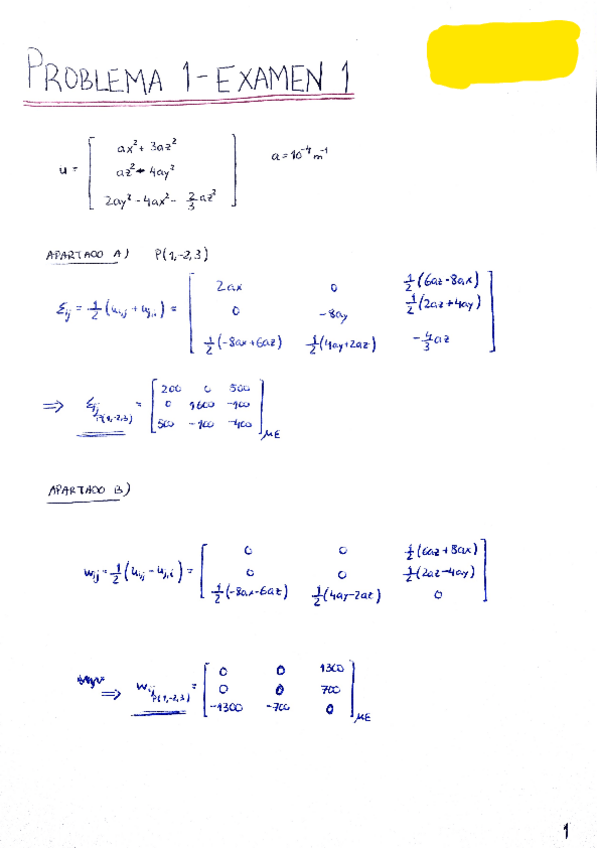 PROBLEMA 1 - EXAMEN 1
u = [ ax² + 3az² ; az² - 4ay² ; 2ay² - 4ax² - 2/3 az² ] a = 10⁻⁴ m⁻¹
APARTADO A) P(1,-2,3)
ε_ij = 1/2 (u_i,j + u_j,i) = [ 2ax 0 1/2(6az-8ax) ; 0 -8ay 1/2(2az+4ay) ; 1/2(-8ax+6az) 1/2(4ay+2az) -4/3 az ]
⇒ ε_ij P(1,-2,3) = [ 200 0 500 ; 0 1600 -100 ; 500 -100 -400 ] με
APARTADO B)
w_ij = 1/2 (u_i,j - u_j,i) = [ 0 0 1/2(6az+8ax) ; 0 0 1/2(2az-4ay) ; 1/2(-8ax-6az) 1/2(4ay-2az) 0 ]
⇒ w_ij P(1,-2,3) = [ 0 0 1300 ; 0 0 700 ; -1300 -700 0 ] με
1